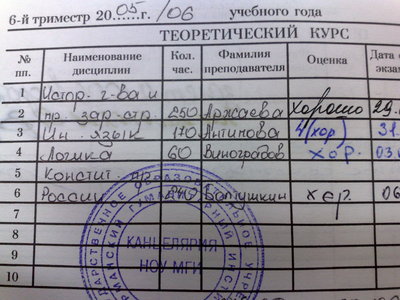 6-й триместр 2005 г. /06 учебного года
ТЕОРЕТИЧЕСКИЙ КУРС
№ пп. Наименование дисциплин Кол. час. Фамилия преподавателя Оценка Дата экза
1 Истор. г-ва и
2 пр. зар. стр. 250 Аржаева Хорошо 29.
3 Ин. язык 170 Антипова 4 (хор) 31.
4 Логика 60 Виноградов хор. 03.
5 Констит. пр.
6 России 240 хор. 06
7
8
9
10
КАНЦЕЛЯРИЯ
НОУ МГИ